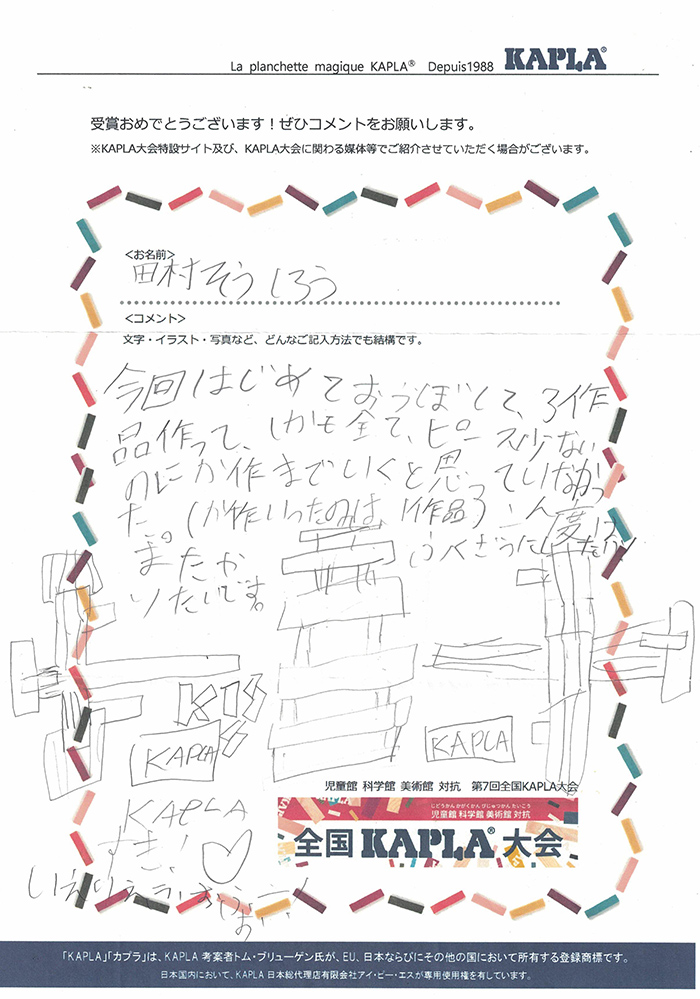 La planchette magique KAPLA® Depuis1988 KAPLA®
受賞おめでとうございます！ぜひコメントをお願いします。
※KAPLA大会特設サイト及び、KAPLA大会に関わる媒体等でご紹介させていただく場合がございます。
<お名前>
田村そうしろう
<コメント>
文字・イラスト・写真など、どんなご記入方法でも結構です。
今回はじめておうぼして、3作
品作って、しかも全て、ピース少ない
のにか作までいくと思っていなかっ
た。(か作いったのは、1作品)
またか
りたいです。
KAPLA
KAPLA
KAPLA
すき!
児童館 科学館 美術館 対抗 第7回全国KAPLA大会
じどうかん かがくかん びじゅつかん たいこう
児童館 科学館 美術館 対抗
全国 KAPLA® 大会
「KAPLA」「カプラ」は、KAPLA 考案者トム・ブリューゲン氏が、EU、日本ならびにその他の国において所有する登録商標です。
日本国内において、KAPLA 日本総代理店有限会社アイ・ピー・エスが専用使用権を有しています。